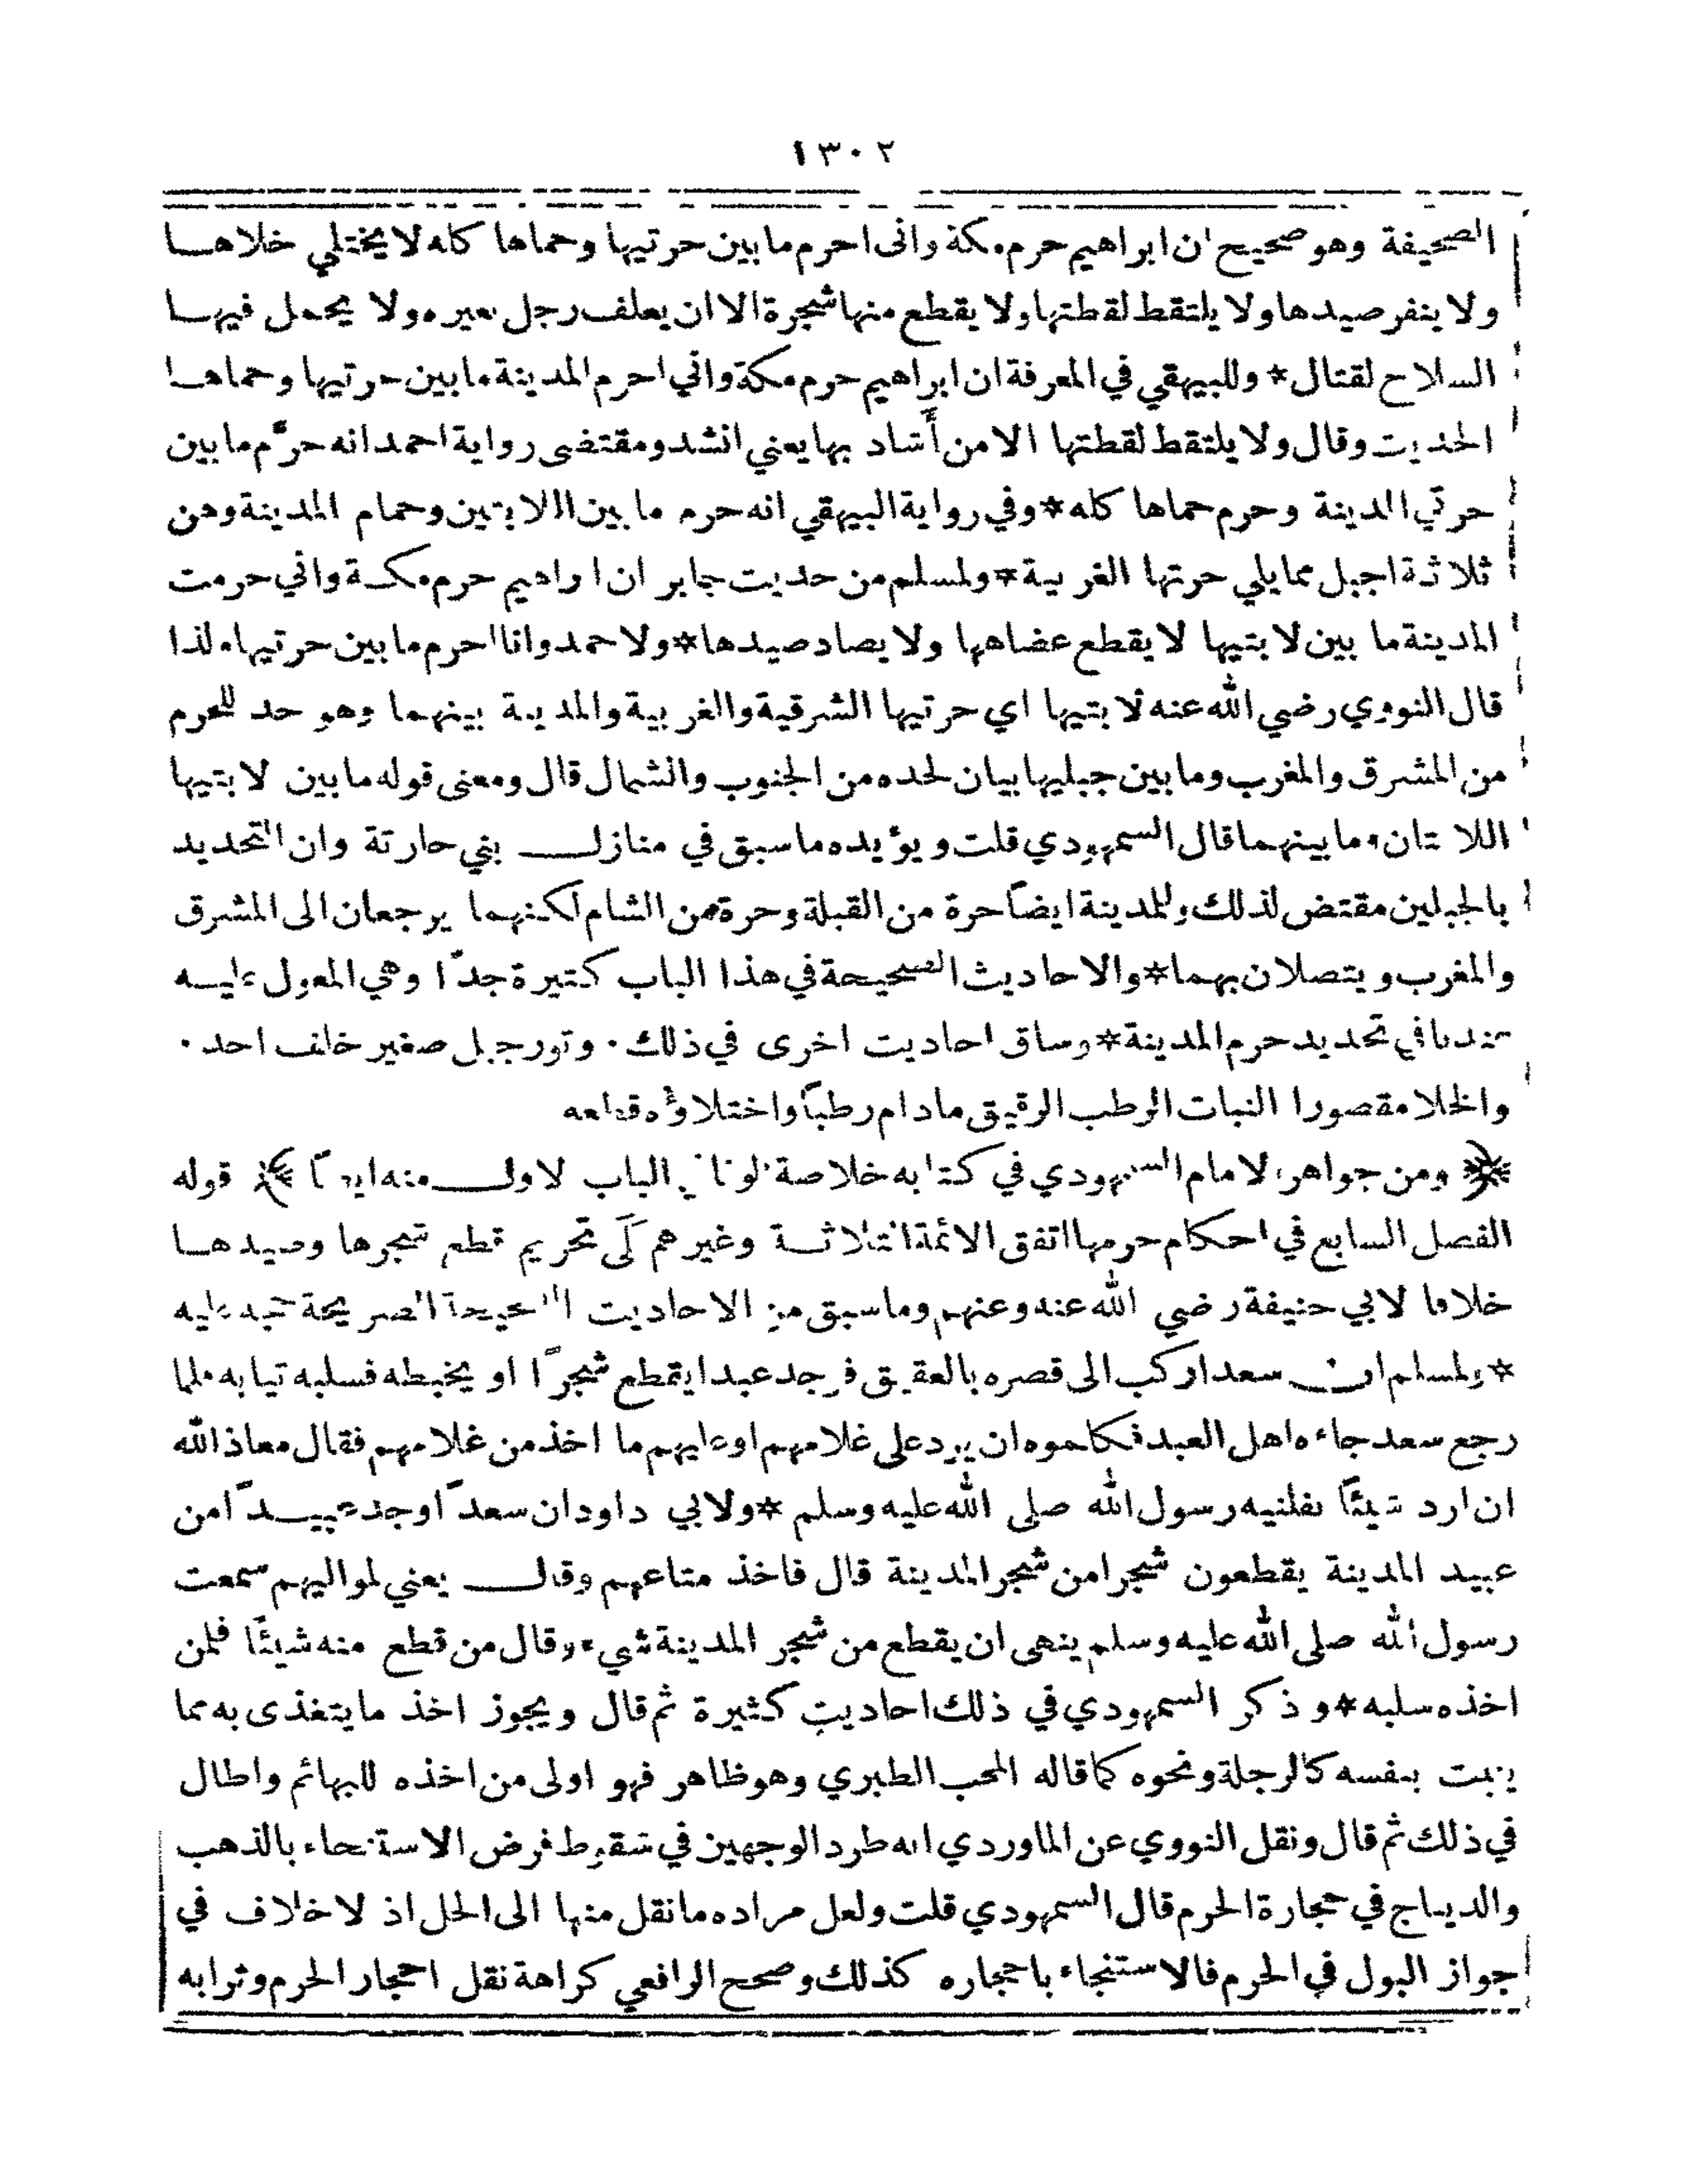 ١٣٠٢
الصحيفة وهو صحيح ان ابراهيم حرم مكة وانى احرم ما بين حرتيها وحماها كله لا يختلي خلاهـا
ولا ينفر صيدها ولا يلتقط لقطتها ولا يقطع منها شجرة الا ان يعلف رجل بعيره ولا يحمل فيهـا
السلاح لقتال * وللبيهقي في المعرفة ان ابراهيم حرم مكة واني احرم المدينة ما بين حرتيها وحماهـا
الحديث وقال ولا يلتقط لقطتها الا من أشاد بها يعني انشد ومقتضى رواية احمد انه حرَّم ما بين
حرتي المدينة وحرم حماها كله * وفي رواية البيهقي انه حرم ما بين اللابتين وحمام المدينة وهن
ثلاثة اجبل مما يلي حرتها الغربية * ولمسلم من حديث جابر ان ابراهيم حرم مكـة واني حرمت
المدينة ما بين لابتيها لا يقطع عضاهها ولا يصاد صيدها * ولاحمد وانا احرم ما بين حرتيها ولذا
قال النووي رضي الله عنه لابتيها اي حرتيها الشرقية والغربية والمدينة بينهما وهو حد للحرم
من المشرق والمغرب وما بين جبليها بيان لحده من الجنوب والشمال قال ومعنى قوله ما بين لابتيها
اللابتان وما بينهما قال السمهودي قلت ويؤيده ما سبق في منازلـــ بني حارثة وان التحديد
بالجبلين مقتض لذلك وللمدينة ايضاً حرة من القبلة وحرة من الشام لكنهما يرجعان الى المشرق
والمغرب ويتصلان بهما * والاحاديث الصحيحة في هذا الباب كثيرة جدًّا وهي المعول عليـه
عندنا في تحديد حرم المدينة * وساق احاديث اخرى في ذلك . وثور جبل صغير خلف احد .
والخلا مقصورا النبات الرطب الرقيق ما دام رطباً واختلاؤه قطعه
﴿ ومن جواهر الامام السمهودي في كتابه خلاصة الوفا في الباب الاولـــ منه ايضاً ﴾ قوله
الفصل السابع في احكام حرمها اتفق الائمة الثلاثـة وغيرهم على تحريم قطع شجرها وصيدهـا
خلافا لابي حنيفة رضي الله عنه وعنهم وما سبق من الاحاديث الصحيحة الصريحة حجة عليه
* ولمسلم انـــ سعدا ركب الى قصره بالعقيق فوجد عبدا يقطع شجرًا او يخبطه فسلبه ثيابه فلما
رجع سعد جاءه اهل العبد فكلموه ان يرد على غلامهم او عليهم ما اخذ من غلامهم فقال معاذ الله
ان ارد شيئًا نفلنيه رسول الله صلى الله عليه وسلم * ولابي داود ان سعدًا وجد عبيـدًا من
عبيد المدينة يقطعون شجرا من شجر المدينة قال فاخذ متاعهم وقالـــ يعني لمواليهم سمعت
رسول الله صلى الله عليه وسلم ينهى ان يقطع من شجر المدينة شيء وقال من قطع منه شيئًا فلمن
اخذه سلبه * وذكر السمهودي في ذلك احاديث كثيرة ثم قال ويجوز اخذ ما يتغذى به مما
ينبت بنفسه كالرجلة ونحوه كما قاله المحب الطبري وهو ظاهر فهو اولى من اخذه للبهائم واطال
في ذلك ثم قال ونقل النووي عن الماوردي انه طرد الوجهين في سقوط فرض الاستنجاء بالذهب
والديباج في حجارة الحرم قال السمهودي قلت ولعل مراده ما نقل منها الى الحل اذ لا خلاف في
جواز البول في الحرم فالاستنجاء باحجاره كذلك وصحح الرافعي كراهة نقل احجار الحرم وترابه